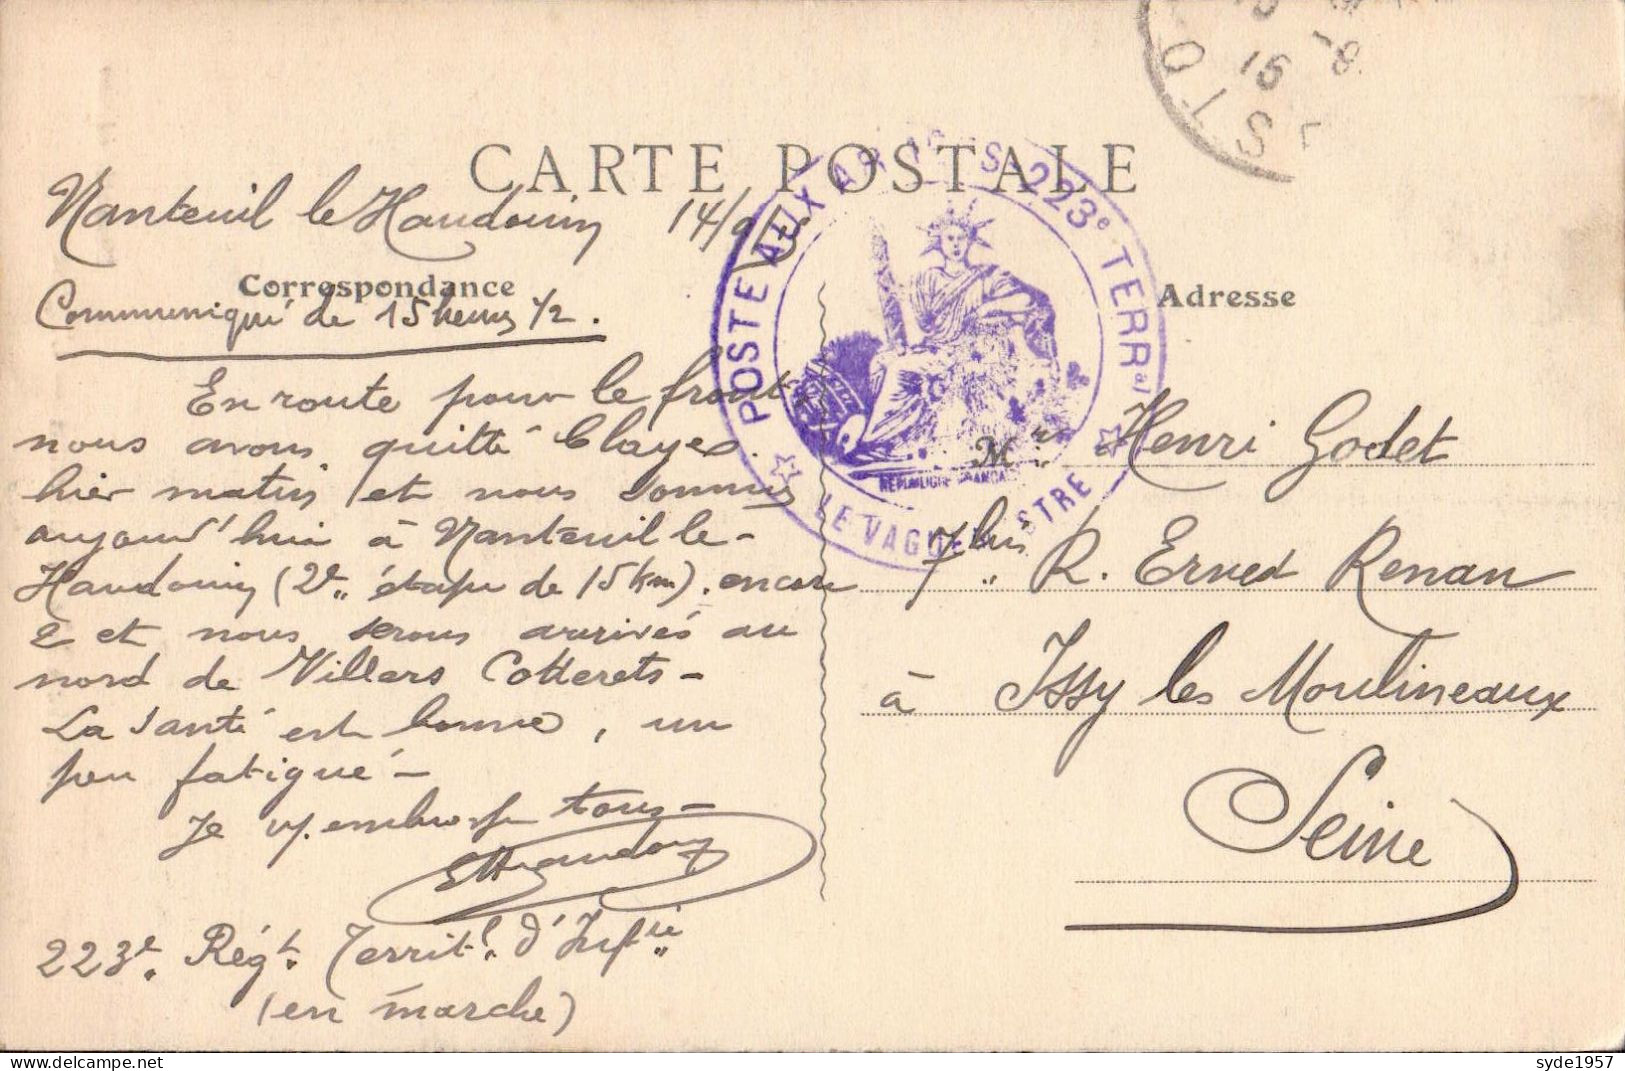 CARTE POSTALE
Nanteuil le Haudouin 14/9/15
Correspondance
Communiqué de 15 heures 1/2.
En route pour le front
nous avons quitté Claye
hier matin et nous sommes
aujourd'hui à Nanteuil le-
Haudouin (2e étape de 15 km). encore
2 et nous serons arrivés au
nord de Villers Cotterets-
La santé est bonne, un
peu fatigué-
Je v. embrasse tous-
223e. Régt. Territl. d'Infie
(en marche)
POSTE AUX ARMÉES 223e TERRal
LE VAGUEMESTRE
REPUBLIQUE FRANCAISE
15
OISE
Adresse
Mr Henri Godet
7bis R. Ernest Renan
à Issy les Moulineaux
Seine
syde1957